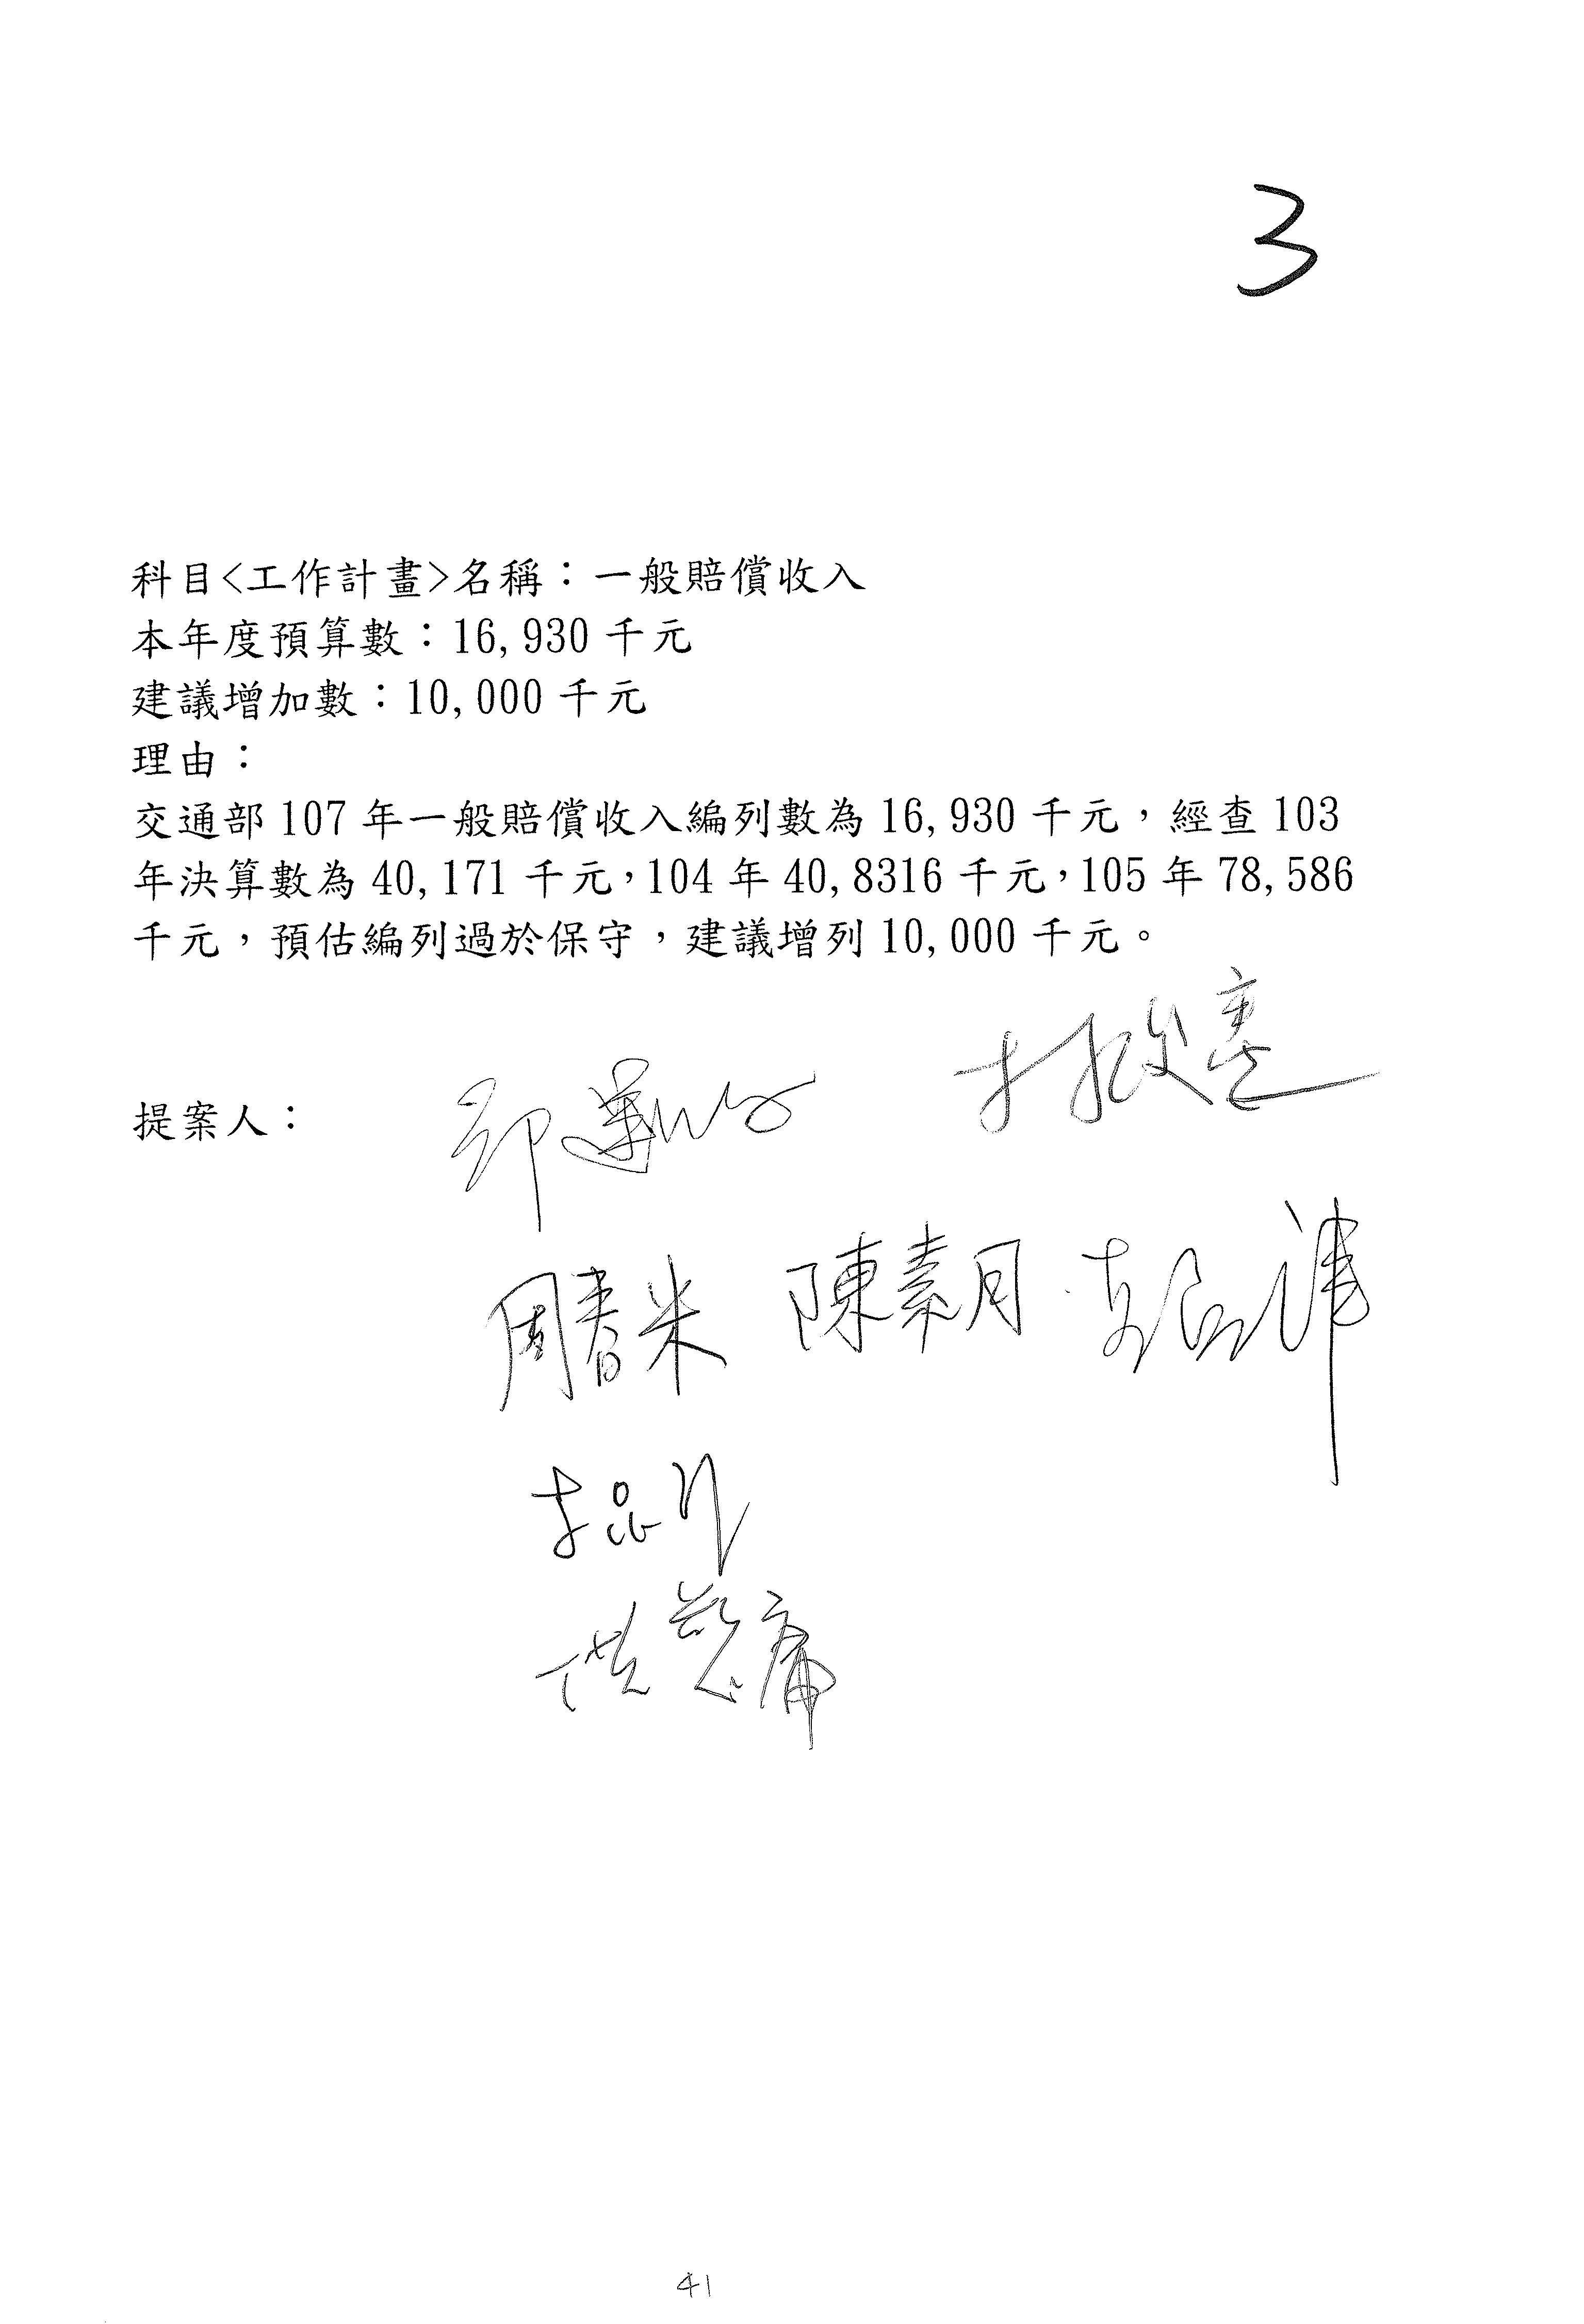 3
科目<工作計畫>名稱：一般賠償收入
本年度預算數：16,930 千元
建議增加數：10,000 千元
理由：
交通部 107 年一般賠償收入編列數為 16,930 千元，經查 103
年決算數為 40,171 千元，104 年 40,8316 千元，105 年 78,586
千元，預估編列過於保守，建議增列 10,000 千元。
林俊憲
提案人： 邱議瑩
周春米 陳素月
洪慈庸
41